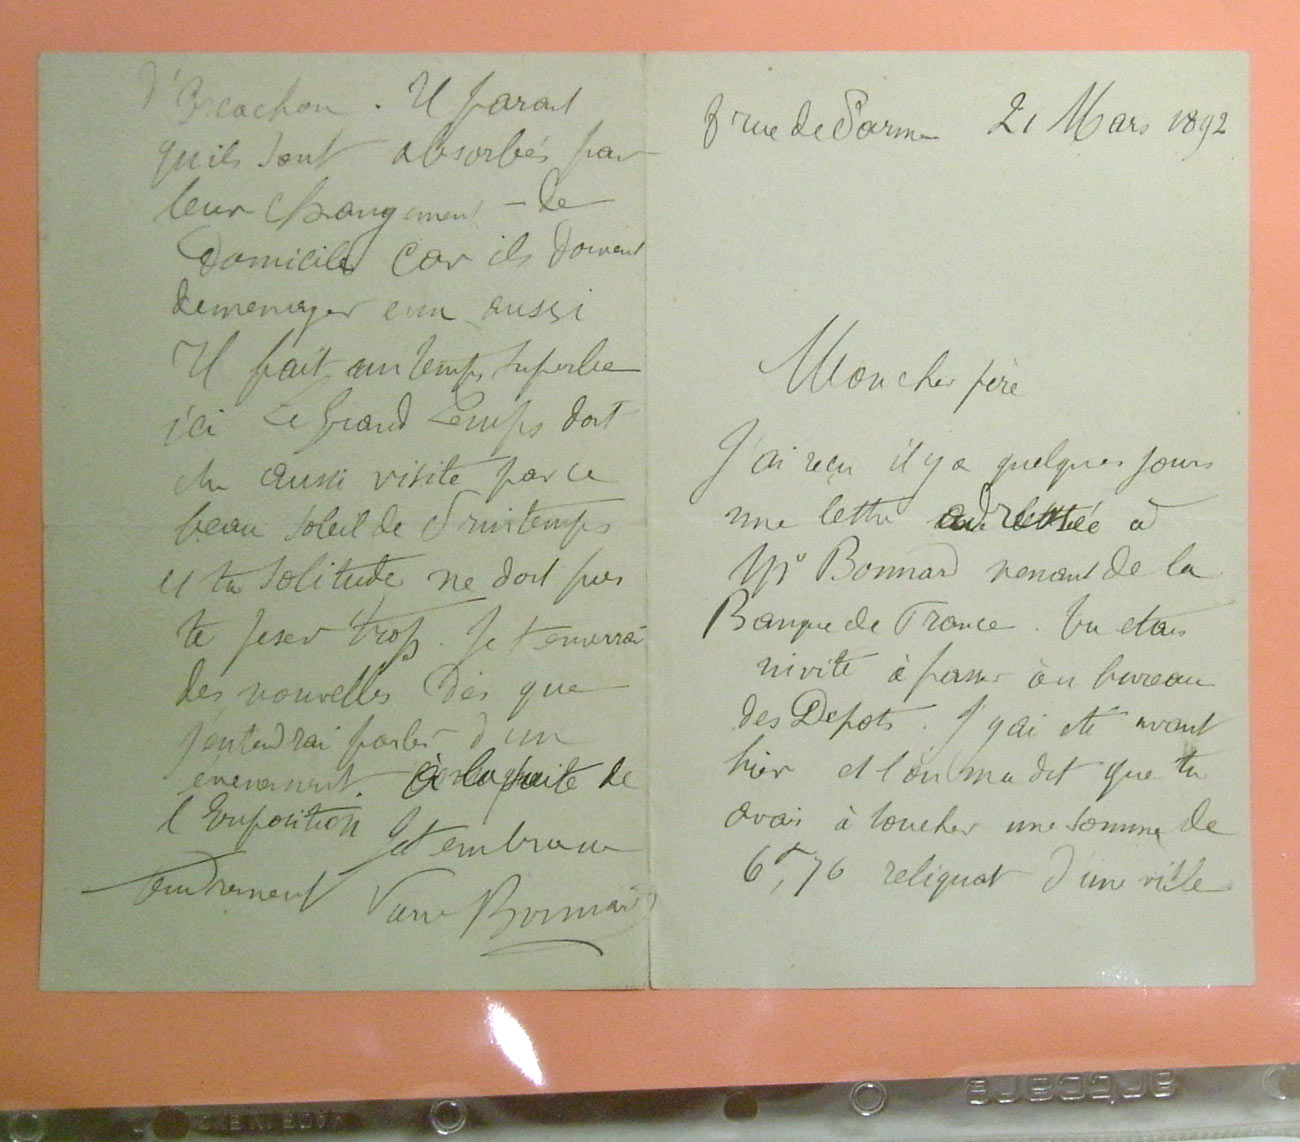 8 rue de Parme 21 Mars 1892
Mon cher père
J'ai reçu il y a quelques jours
une lettre adressée à
Mr Bonnard venant de la
Banque de France. Tu etais
invité à passer au bureau
des Depots. J'y ai été avant
hier et l'on m'a dit que tu
avais à toucher une somme de
6f,76 reliquat d'une
d'Arcachon. Il parait
qu'ils sont absorbés par
leur changement de
domicile car ils doivent
demenager eux aussi
Il fait un temps superbe
ici Le Grand Lemps doit
etre aussi visité par ce
beau soleil de Printemps
et ta solitude ne doit pas
te peser trop. Je t'enverrai
des nouvelles dès que
j'entendrai parler d'un
évenement à la suite de
l'Exposition Je t'embrasse
tendrement Pierre Bonnard
artcare